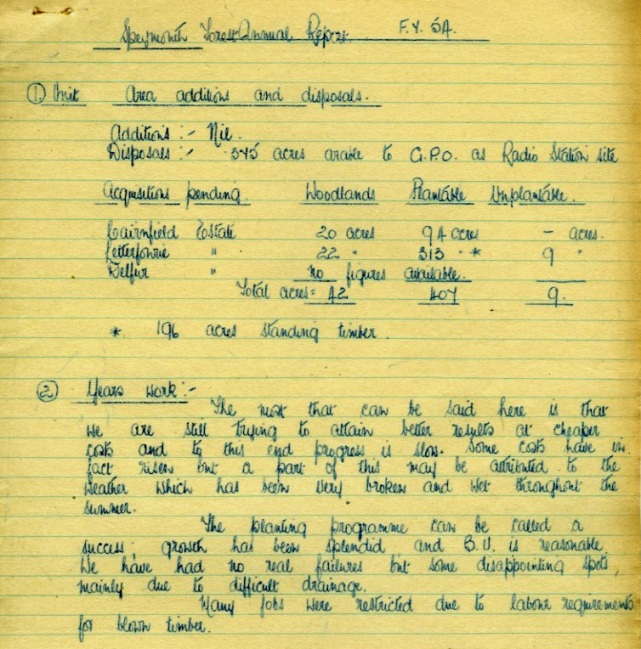 Speymouth Forest Annual Report. F.Y. 54.
① Unit Area additions and disposals.
Additions :- Nil.
Disposals :- .375 acres arable to G.P.O. as Radio Station site
Acquisitions pending Woodlands Plantable Unplantable.
Cairnfield Estate 20 acres 94 acres - acres.
Letterfourie " 22 " 313 " * 9 "
Delfur " no figures available.
Total acres = 42 407 9.
* 196 acres standing timber.
② Years work :-
The most that can be said here is that
we are still trying to attain better results at cheaper
costs and to this end progress is slow. Some costs have in
fact risen but a part of this may be attributed to the
weather which has been very broken and wet throughout the
summer.
The planting programme can be called a
success; growth has been splendid and B.U. is reasonable.
We have had no real failures but some disappointing spots,
mainly due to difficult drainage.
Many jobs were restricted due to labour requirements
for blown timber.